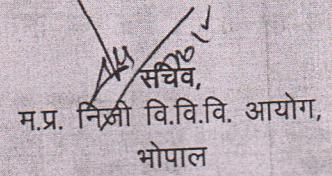 सचिव,
म.प्र. निजी वि.वि.वि. आयोग,
भोपाल